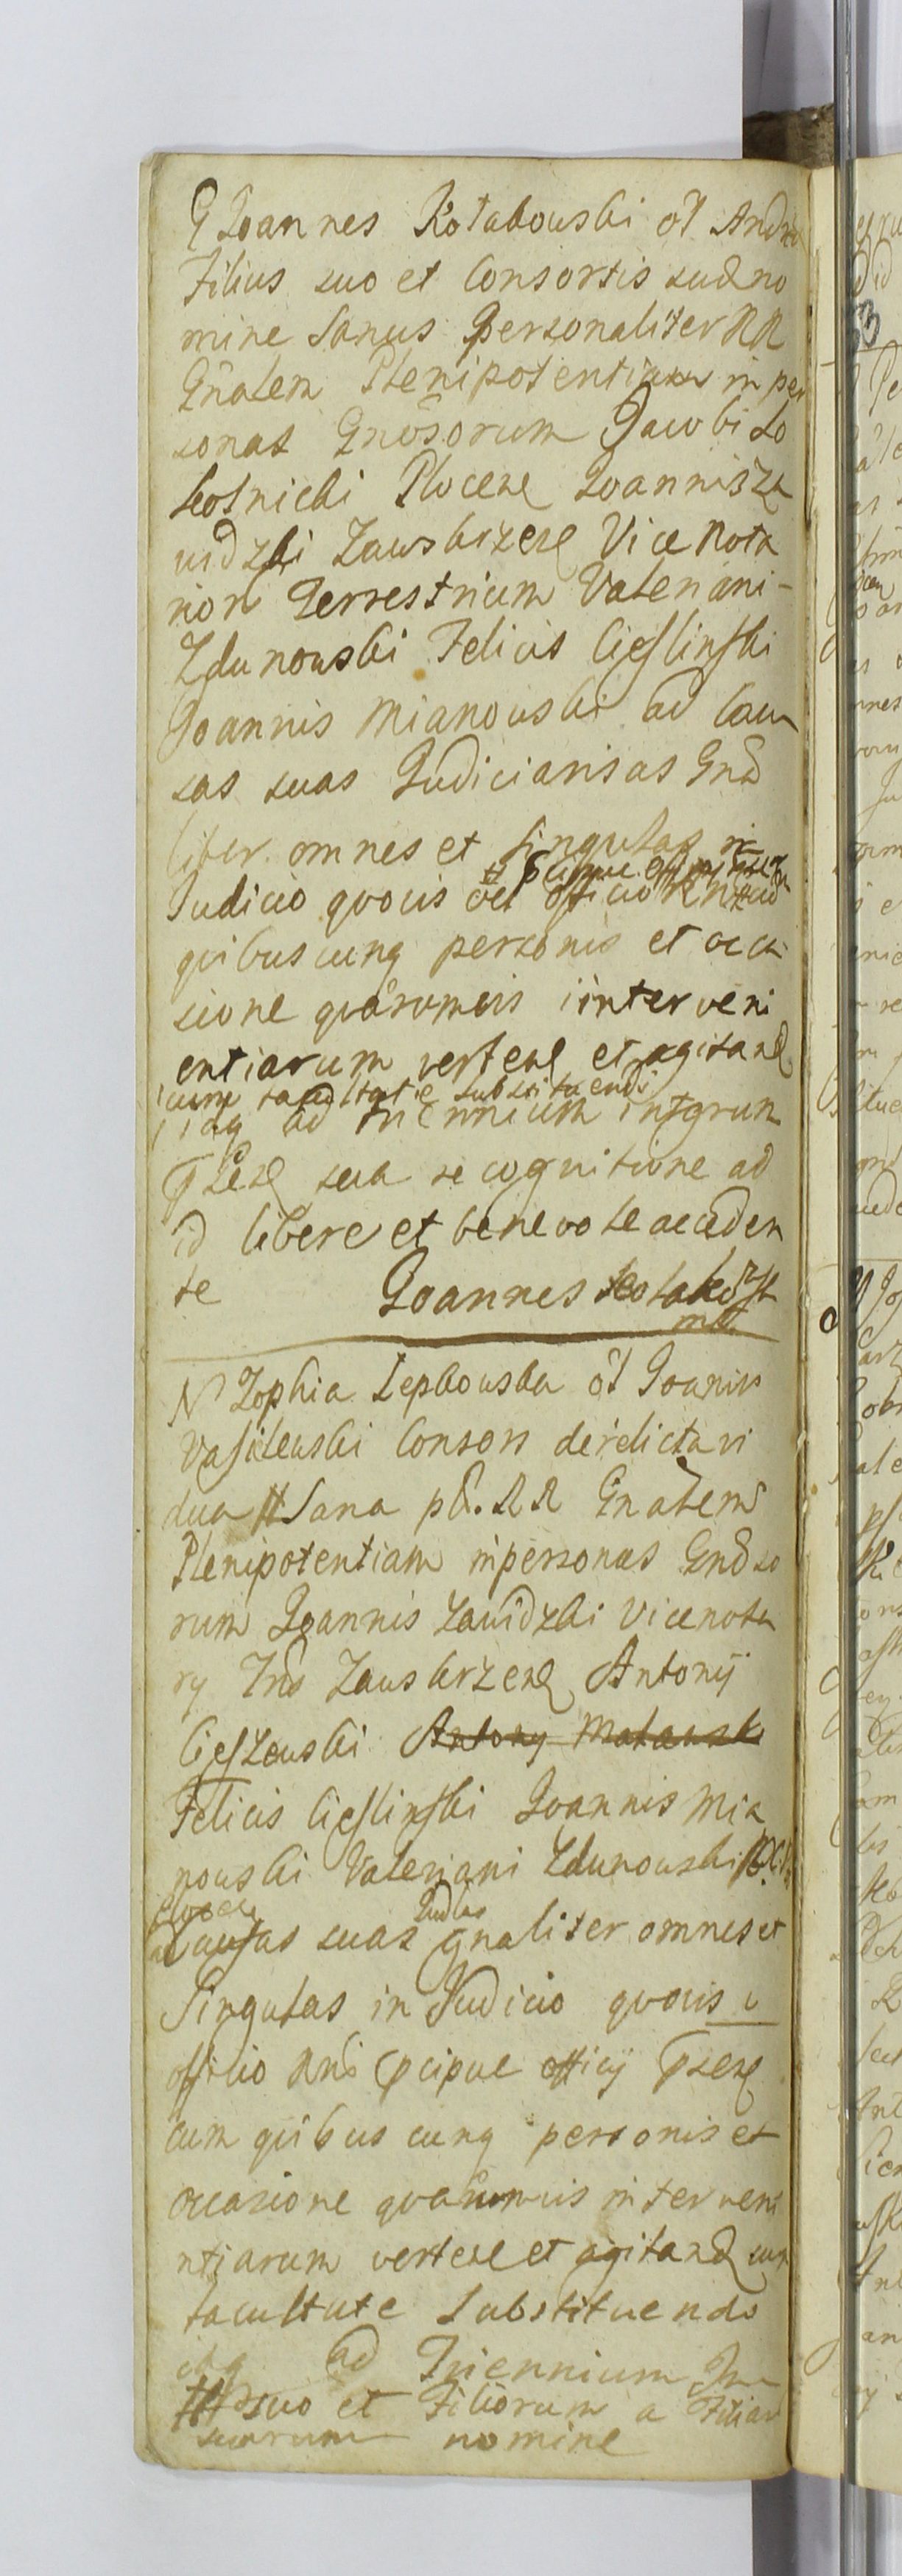 G Joannes Kotabowski ol Andrea
Filius suo et Consortis suæ no
mine Sanus Personaliter RR
Gñalem Plenipotentiam in per
sonas Gnõsorum Jacobi So
kolnicki Plocen Joannis Za
widzki Zawskrzen Vice Nota
rior Terrestrium Valeriani-
Zdunowski Felicis Cieslinski
Joannis Mianowski ad Cau
sas suas Judiciarias as Gna
liter omnes et singulas in
Judicio quovis vel officio
quibuscunq personis et occa
sione quarumvis iinterveni
entiarum verten et agitand
cum facultate substituendi
itaq ad Triennium intgrum
Psen sua recognitione ad
id libere et benevole acceden
te Joannes Kotabowski
mp
N Zophia Lepkowska ol Joannis
Wasilewski Consors derelicta vi
dua Sana pl. RR Gnalem
Plenipotentiam in personas Gnoso
rum Joannis Zawidzki Vicenota
ry Tris Zawskrzen Antonij
Cieszewski Antony Makowsk
Felicis Cieslinski Joannis Mia
nowski Valeriani Zdunowski
ad Causas suas Judles gnaliter omnes et
Singulas in Judicio quovis v
officio Rni Pcipue officij Psen
cum quibus cunq personis et
occasione quarumvis interveni
ntiarum verten et agitand cum
facultate Substituendi
itaq ad Triennium In
suo et Filiorum a Filiar
suarum nomine